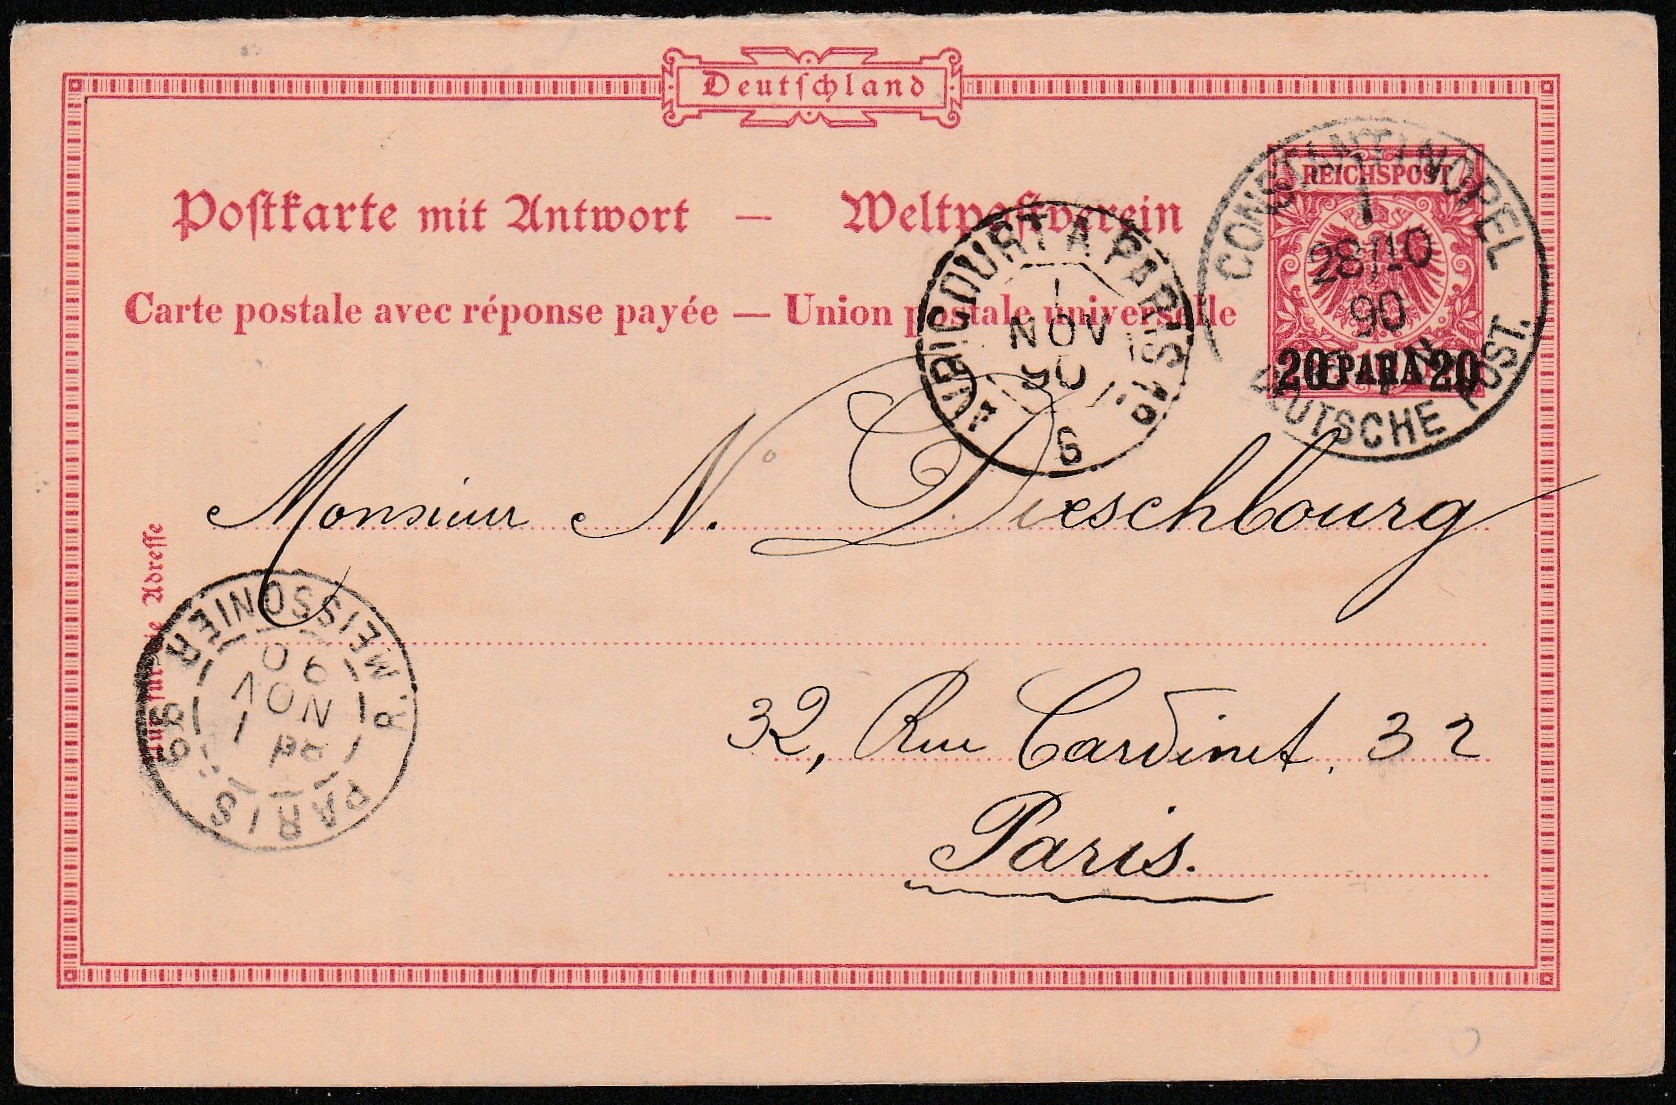 Deutschland
Postkarte mit Antwort — Weltpostverein
Carte postale avec réponse payée — Union postale universelle
REICHSPOST
20 PARA 20
CONSTANTINOPEL
1
28/10
90
DEUTSCHE POST.
AVRICOURT A PARIS 1°
1
NOV
90
G
Monsieur N. Dieschbourg
32, Rue Cardinet. 32
Paris.
Adresse
R. MEISSONIER
PARIS 68
1
NOV
90